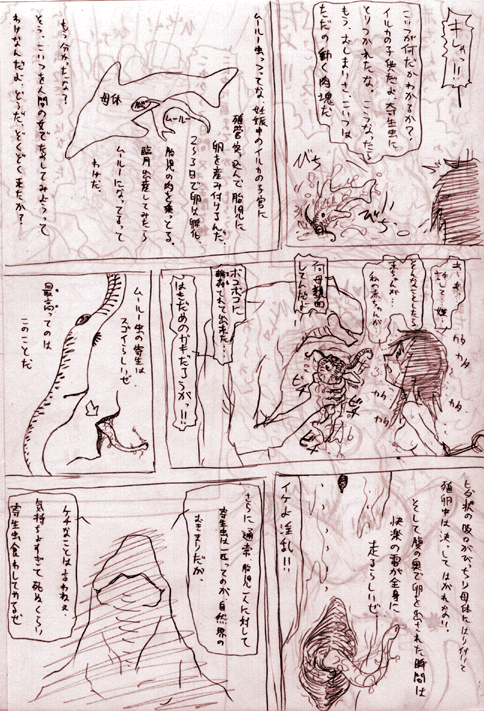 キシャッ!!
こいつが何だかわかるか？
イルカの子供だよ、寄生虫に
とりつかれたな、こうなったら
もうおしまいさ、こいつは
ただの動く肉塊だ
びち
びち
ムールー虫っつってな、妊娠中のイルカの子宮に
産卵管突っ込んで胎児に
卵を産み付けるんだ。
2〜3日で卵は孵化
胎児の肉を喰ってる。
臨月出産してみたら
ムールーになってるって
わけだ。
もう分かったな？
そう、こいつを人間の女でためしてみようって
わけなんだよ、どうだ、ぞくぞく来たか？
母体
胎
ムールー
そんなことしたら
赤ちゃんが…
私の赤ちゃんが
カタ
カタ
カタ
カタ
何母親面
してんだよ!!
ボコボコに
輪姦されて出来た…
はらだめのガキだろうがっ!!
ビチ
ビチ
ムールー虫の寄生は
スゴイらしいぜ
最高ってのは
このことだ
ヒダ状の吸口がびっちり母体にはり付いて
産卵中は決してはがれねの!!
そして腹の奥で卵を出された瞬間は
快楽の電が全身に
走るらしいぜ
イケよ淫乱!!!
さらに通常胎児一人に対して
寄生虫は一匹ってのが自然界の
むきまりだが
ケチなことは言わねえ、
気持ちよすぎて死ぬくらい
寄生虫食わしてやるぜ